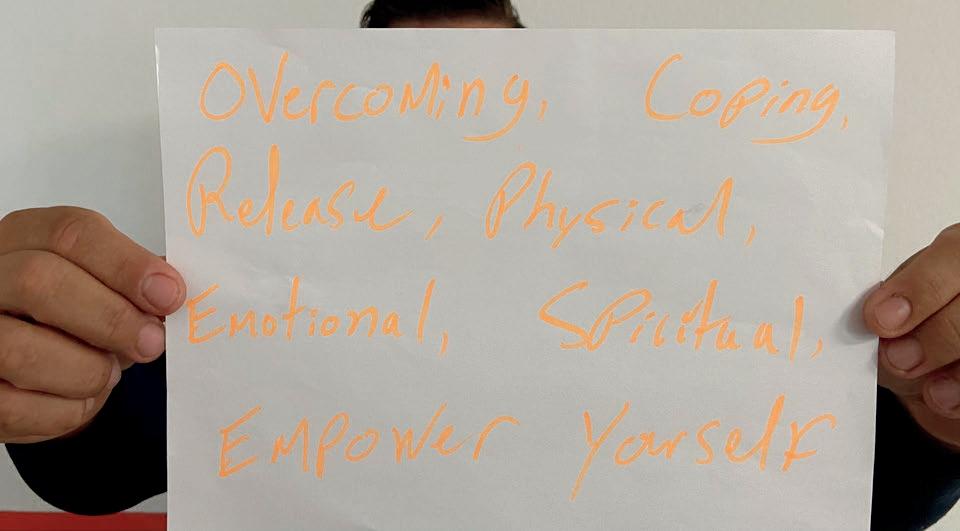 Overcoming, Coping,
Release, Physical,
Emotional, Spiritual,
Empower Yourself